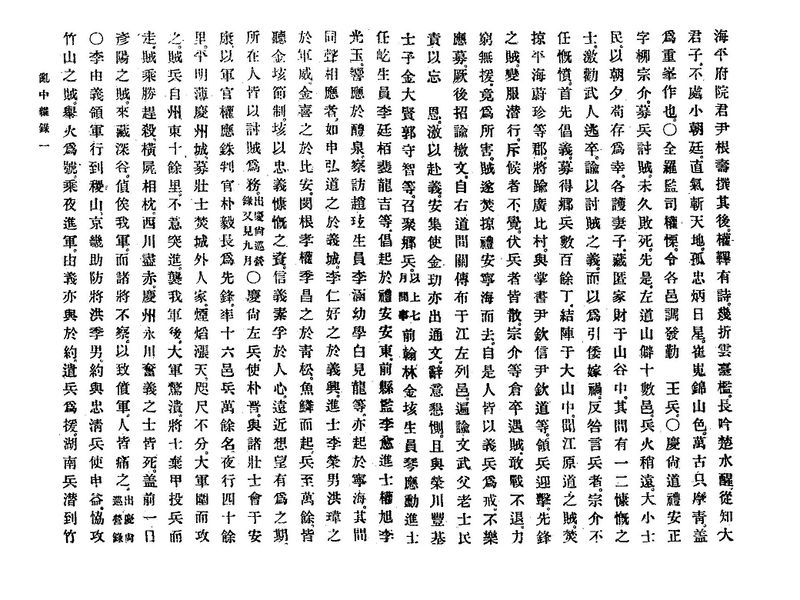 海平府院君尹根壽撰其後。權韠有詩。幾折雲臺檻。長吟楚水醒。從知大
君子。不處小朝廷。直氣斬天地。孤忠炳日星。崔嵬錦山色。萬古只摩靑。蓋
爲重峯作也。〇全羅監司權慄。令各邑調發勤 王兵。〇慶尙道禮安正
字柳宗介。募兵討賊。未久敗死。先是。左道山僻十數邑。兵火稍遠。大小士
民。以朝夕苟存爲幸。各護妻子。藏匿家財于山谷中。其間有一二慷慨之
士。激勸武人逃卒。諭以討賊之義。而以爲引倭嫁禍。反咎言兵者。宗介不
任慨憤。首先倡義。募得鄕兵數百餘丁。結陣于大山中。聞江原道之賊。焚
掠平海蔚珍等郡。將踰廣比村。與掌書尹欽信尹欽道等。領兵迎擊。先鋒
之賊。變服潛行。斥候者不覺。伏兵者皆散。宗介等倉卒遇賊。敢戰不退。力
窮無援。竟爲所害。賊遂焚掠禮安寧海而去。自是人皆以義兵爲戒。不樂
應募。厥後招諭檄文。自右道間關傳布于江左列邑。遍諭文武父老士民
責以忘 恩。激以赴義。安集使金玏亦出通文。辭意懇惻。且與榮川豐基
士子金大賢郭守智等。召聚鄕兵。以上七月間事前翰林金垓生員琴應勳進士
任屹生員李廷栢裴龍吉等。倡起於禮安安東。前縣監李愈進士權旭李
光玉。響應於醴泉。察訪趙玹生員李涵幼學白見龍等。亦起於寧海。其間
同聲相應者。如申弘道之於義城。李仁好之於義興。進士李榮男洪瑋之
於軍威。金喜之於比安。閔根孝權季昌之於靑松。魚鱗而起。兵至萬餘。皆
聽金垓節制。垓以忠義慷慨之資。信義素孚於人心。遠近想望有爲之期。
所在人皆以討賊爲務。出慶尙巡營錄又見九月〇慶尙左兵使朴晉。與諸壯士會于安
康。以軍官權應銖判官朴毅長爲先鋒。率十六邑兵萬餘名。夜行四十餘
里。平明薄慶州城。募壯士焚城外人家。煙焰漲天。咫尺不分。大軍圍而攻
之。賊兵自州東十餘里。不意突進。襲我軍後。大軍驚潰。將士棄甲投兵而
走。賊乘勝趕殺。橫屍相枕。西川盡赤。慶州永川奮義之士皆死。蓋前一日
彥陽之賊。來藏深谷。偵俟我軍。而諸將不察。以致僨軍。人皆痛之。出慶尙巡營錄
〇李由義領軍行到稷山。京畿助防將洪季男。約與忠淸兵使申益。協攻
竹山之賊。擧火爲號。乘夜進軍。由義亦與於約。遣兵爲援。湖南兵潛到竹
亂中雜錄一